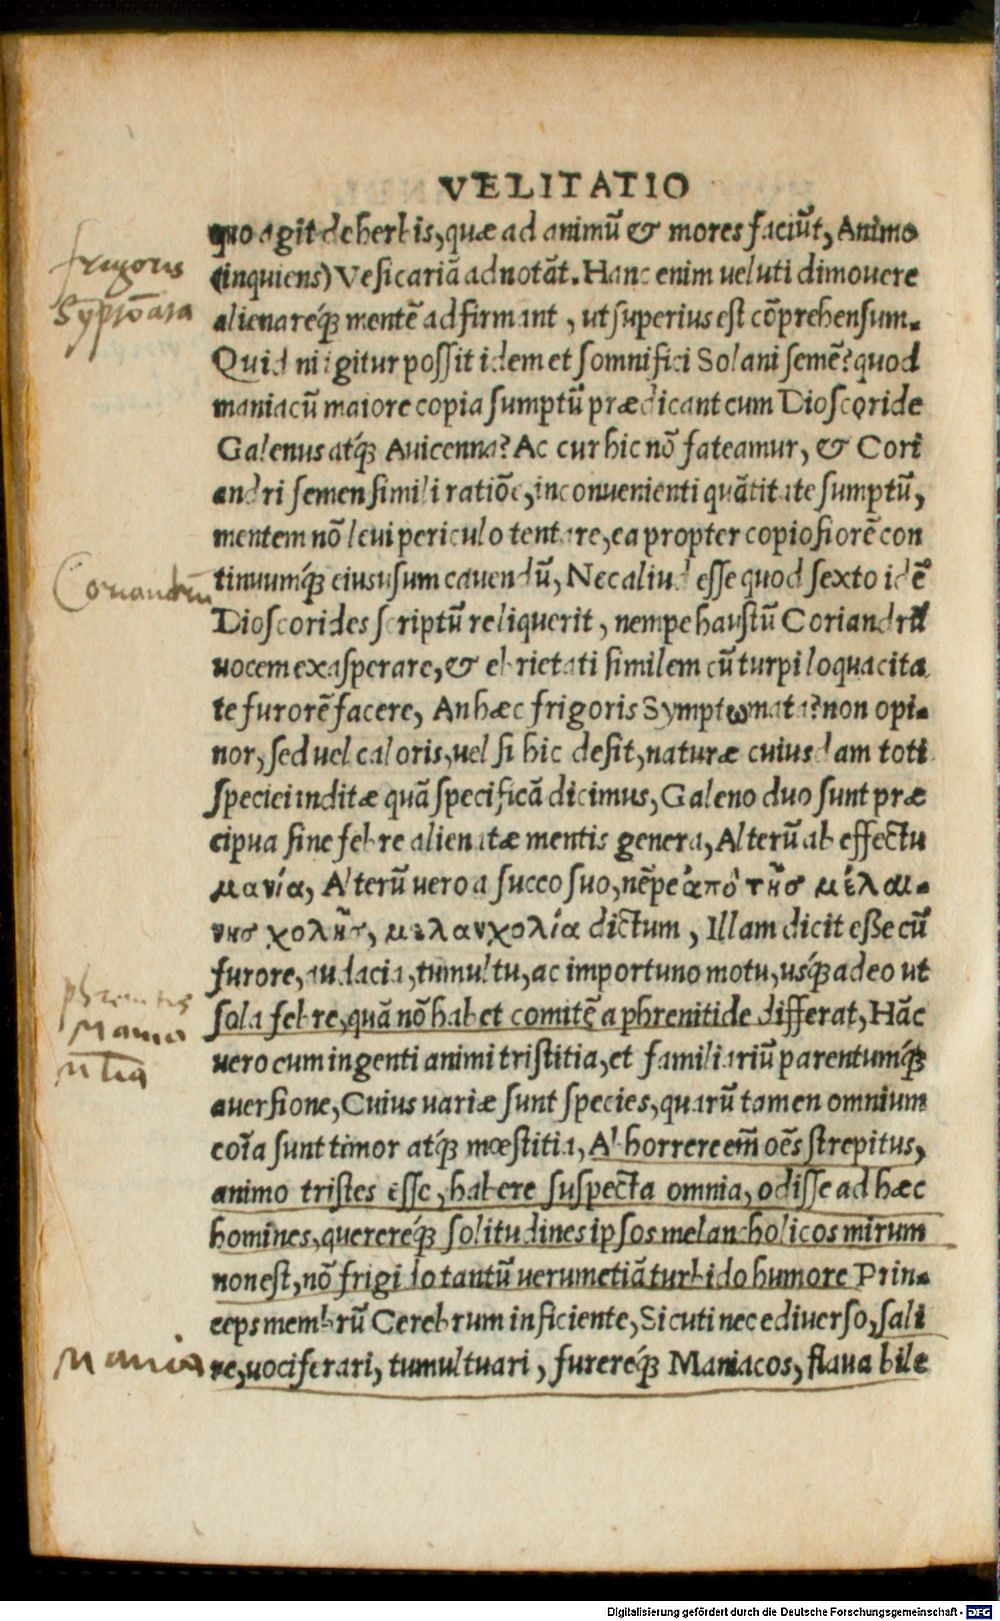 VELITATIO
quo agit de herbis, quæ ad animũ & mores faciũt, Animo
(inquiens) Vesicariã adnotãt. Hanc enim veluti dimovere
alienareq́ꝫ mentẽ adfirmant, ut superius est cõprehensum.
Quid ni igitur possit idem et somnifici Solani semẽ? quod
maniacũ maiore copia sumptũ prædicant cum Dioscoride
Galenus atq́ꝫ Avicenna? Ac cur hic nõ fateamur, & Cori
andri semen simili ratiõe, inconvenienti quãtitate sumptũ,
mentem nõ levi periculo tentare, ea propter copiosiorẽ con
tinuumq́ꝫ eius usum cavendũ, Nec aliud esse quod sexto idẽ
Dioscorides scriptũ reliquerit, nempe haustũ Coriandrũ
vocem exasperare, & ebrietati similem cũ turpi loquacita
te furorẽ facere, An hæc frigoris Symptωmata? non opi-
nor, sed vel caloris, vel si hic desit, naturæ cuiusdam toti
speciei inditæ quã specificã dicimus, Galeno duo sunt præ
cipua sine febre alienatæ mentis genera, Alterũ ab effectu
μανία, Alterũ vero a succo suo, nẽpe ἀπὸ τῆσ μέλαι-
νησ χολῆσ, μελανχολία dictum, Illam dicit esse cũ
furore, audacia, tumultu, ac importuno motu, usq́ꝫ adeo ut
sola febre, quã nõ habet comitẽ a phrenitide differat, Hãc
vero cum ingenti animi tristitia, et familiariũ parentumq́ꝫ
aversione, Cuius variæ sunt species, quarũ tamen omnium
coĩa sunt timor atq́ꝫ mœstitia, Abhorrere em̃ oẽs strepitus,
animo tristes esse, habere suspecta omnia, odisse ad hæc
homines, querereq́ꝫ solitudines ipsos melancholicos mirum
non est, nõ frigido tantũ verumetiã turbido humore Prin-
ceps membrũ Cerebrum inficiente, Sicuti nec e diverso, sali
re, vociferari, tumultuari, furereq́ꝫ Maniacos, flava bile
frigoris
Syptõata
Coriandrũ
phrenitis
Mania
Mania
Digitalisierung gefördert durch die Deutsche Forschungsgemeinschaft - DFG